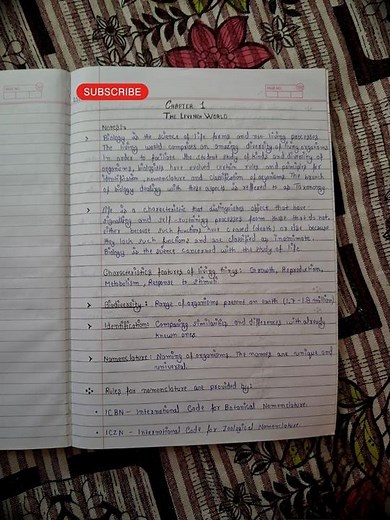 SUBSCRIBE
CHAPTER 1
THE LIVING WORLD
Notes:-
Biology is the science of life forms and non living processes.
The living world comprises an amazing diversity of living organisms
In order to facilitate the study of kinds and diversity of
organisms, biologists have evolved certain rules and principles for
identification, nomenclature and classification of organisms. The branch
of biology dealing with these aspects is referred to as Taxonomy
life is a characteristic that distinguishes object that have
signalling and self sustaining processes form those that do not,
either because such functions have ceased (death) or else because
they lack such functions and are classified as inanimate.
Biology is the science concerned with the study of life
Characteristics features of living things: Growth, Reproduction,
Metabolism, Response to stimuli
Biodiversity: Range of organisms present on earth (1.7-1.8 million).
Identification: Comparing similarities and differences with already
known ones
Nomenclature: Naming of organisms. The names are unique and
universal.
Rules for nomenclature are provided by:
• ICBN - International Code for Botanical Nomenclature
• ICZN - International Code for Zoological Nomenclature